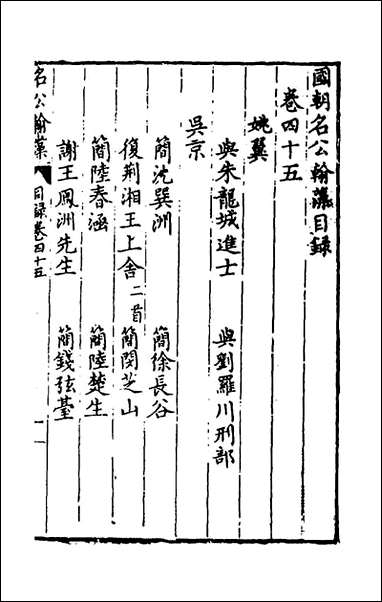 國朝名公翰藻目錄
卷四十五
姚翼
與朱龍城進士 與劉羅川刑部
吳京
簡沈巽洲 簡徐長谷
復荆湘王上舍二首 簡閔芝山
簡陸春涵 簡陸楚生
謝王鳳洲先生 簡錢弦臺
名公翰藻 目錄卷四十五 一